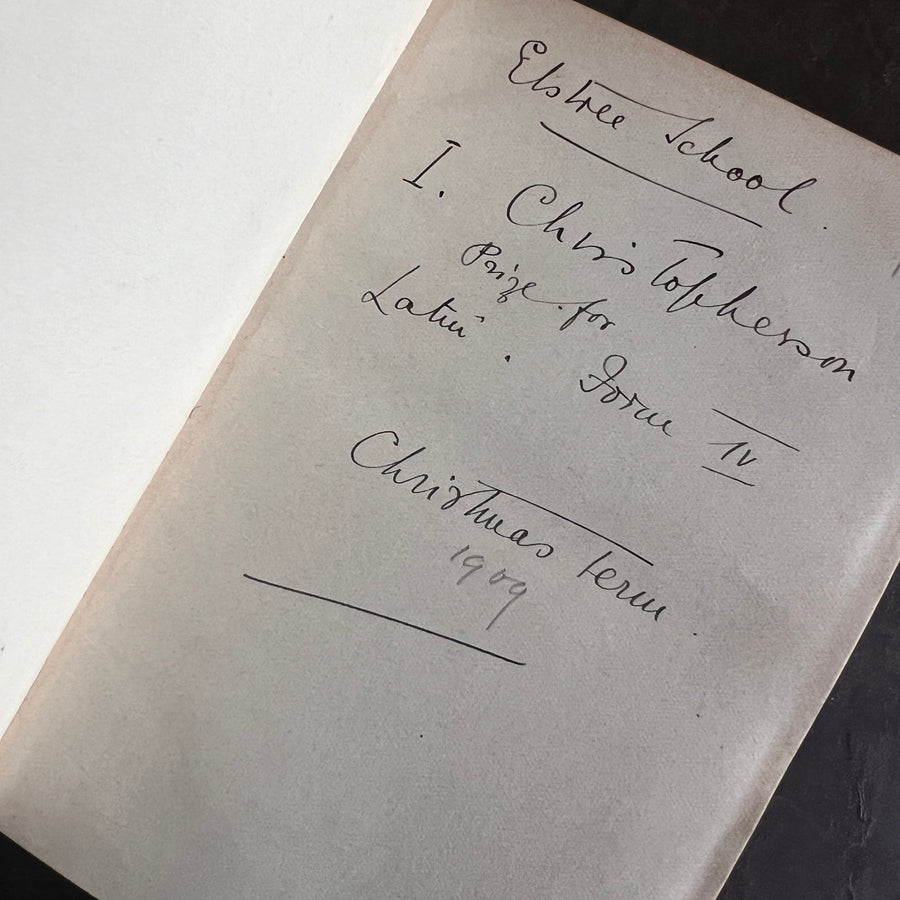 Elstree School
I. Christopherson
Prize for
Latin. Form IV
Christmas Term.
1909